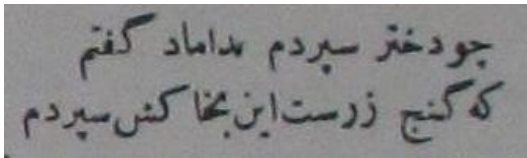 چو دختر سپردم بداماد گفتم
که گنج زرست این بخاکش سپردم